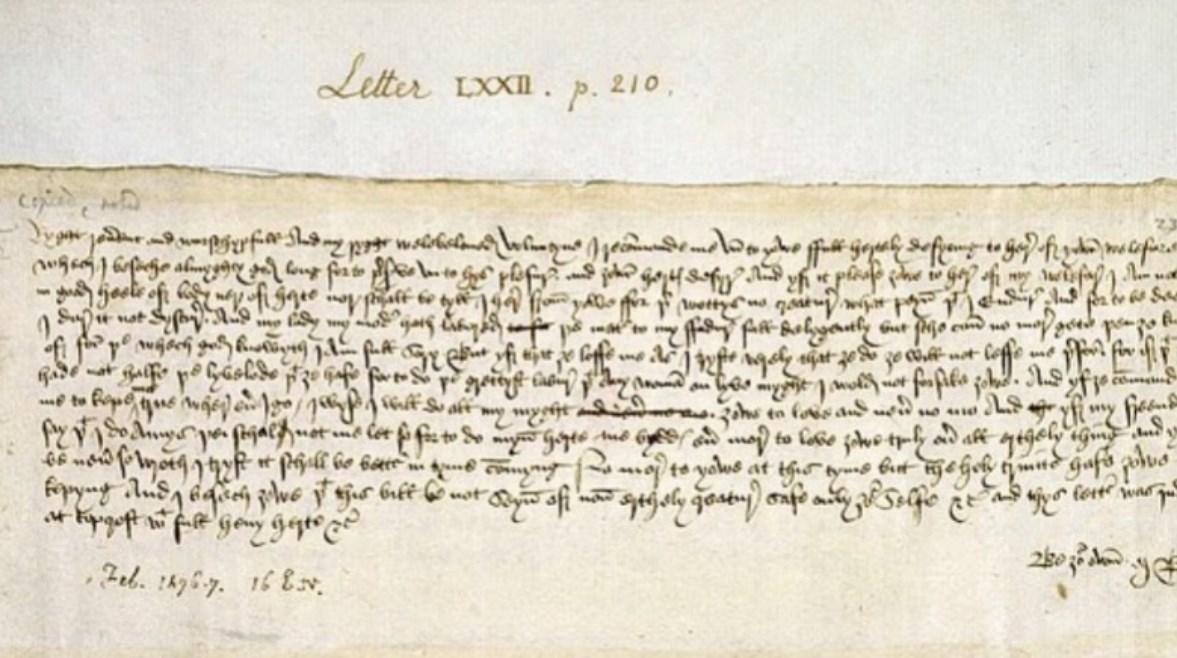 Letter LXXII. p. 210.
Ryght reuerent and wurschypfull And my ryght welebeloued Voluntyne I recomande me vn to yowe ffull hertely desyring to her of yowr welefare
whech I beseche almyghty god long for to preserve vn to hys plesur and yowr hertes desyr And yf it please yowe to her of my welefar I Am not
in good heele of body ner of herte nor schall be tyll I her from yowe ffor þr wottys no creatur what peyn þt I Endur And for to be dee
I dar it not dyscur And my lady my moder hath labored þe mater to my ffadur full delygently but sche can no mor gete þen ye k
of for þe whech god knowyth I Am full Sory But yf that ye loffe me As I tryste verely that ye do ye will not leffe me þrfor for if þt
hade not halfe þe lyvelode þt ye hafe for to do þe grettyst labur þt Any woman on lyve myght I wold not forsake yowe And yf ye comand
me to kepe true wher eu I go I wyse I will do all my myght yowe to love and neu no mo And yf my freend
say þt I do Amys þei schal not me let so for to do myn herte me bydds eu mor to love yowe truly ou all erthely thing and y
be neu so wroth I tryst it schall be bettr in tyme comyng No mor to yowe at this tyme but the holy trinite hafe yowe
kepyng And I besech yowe þt this bill be not Seyn of non erthely creatur safe only yr Selfe &c and thys lettr was in
at topcroft wt full heuy herte &c
Be yr own M B
Feb. 1476-7. 16 E. IV.